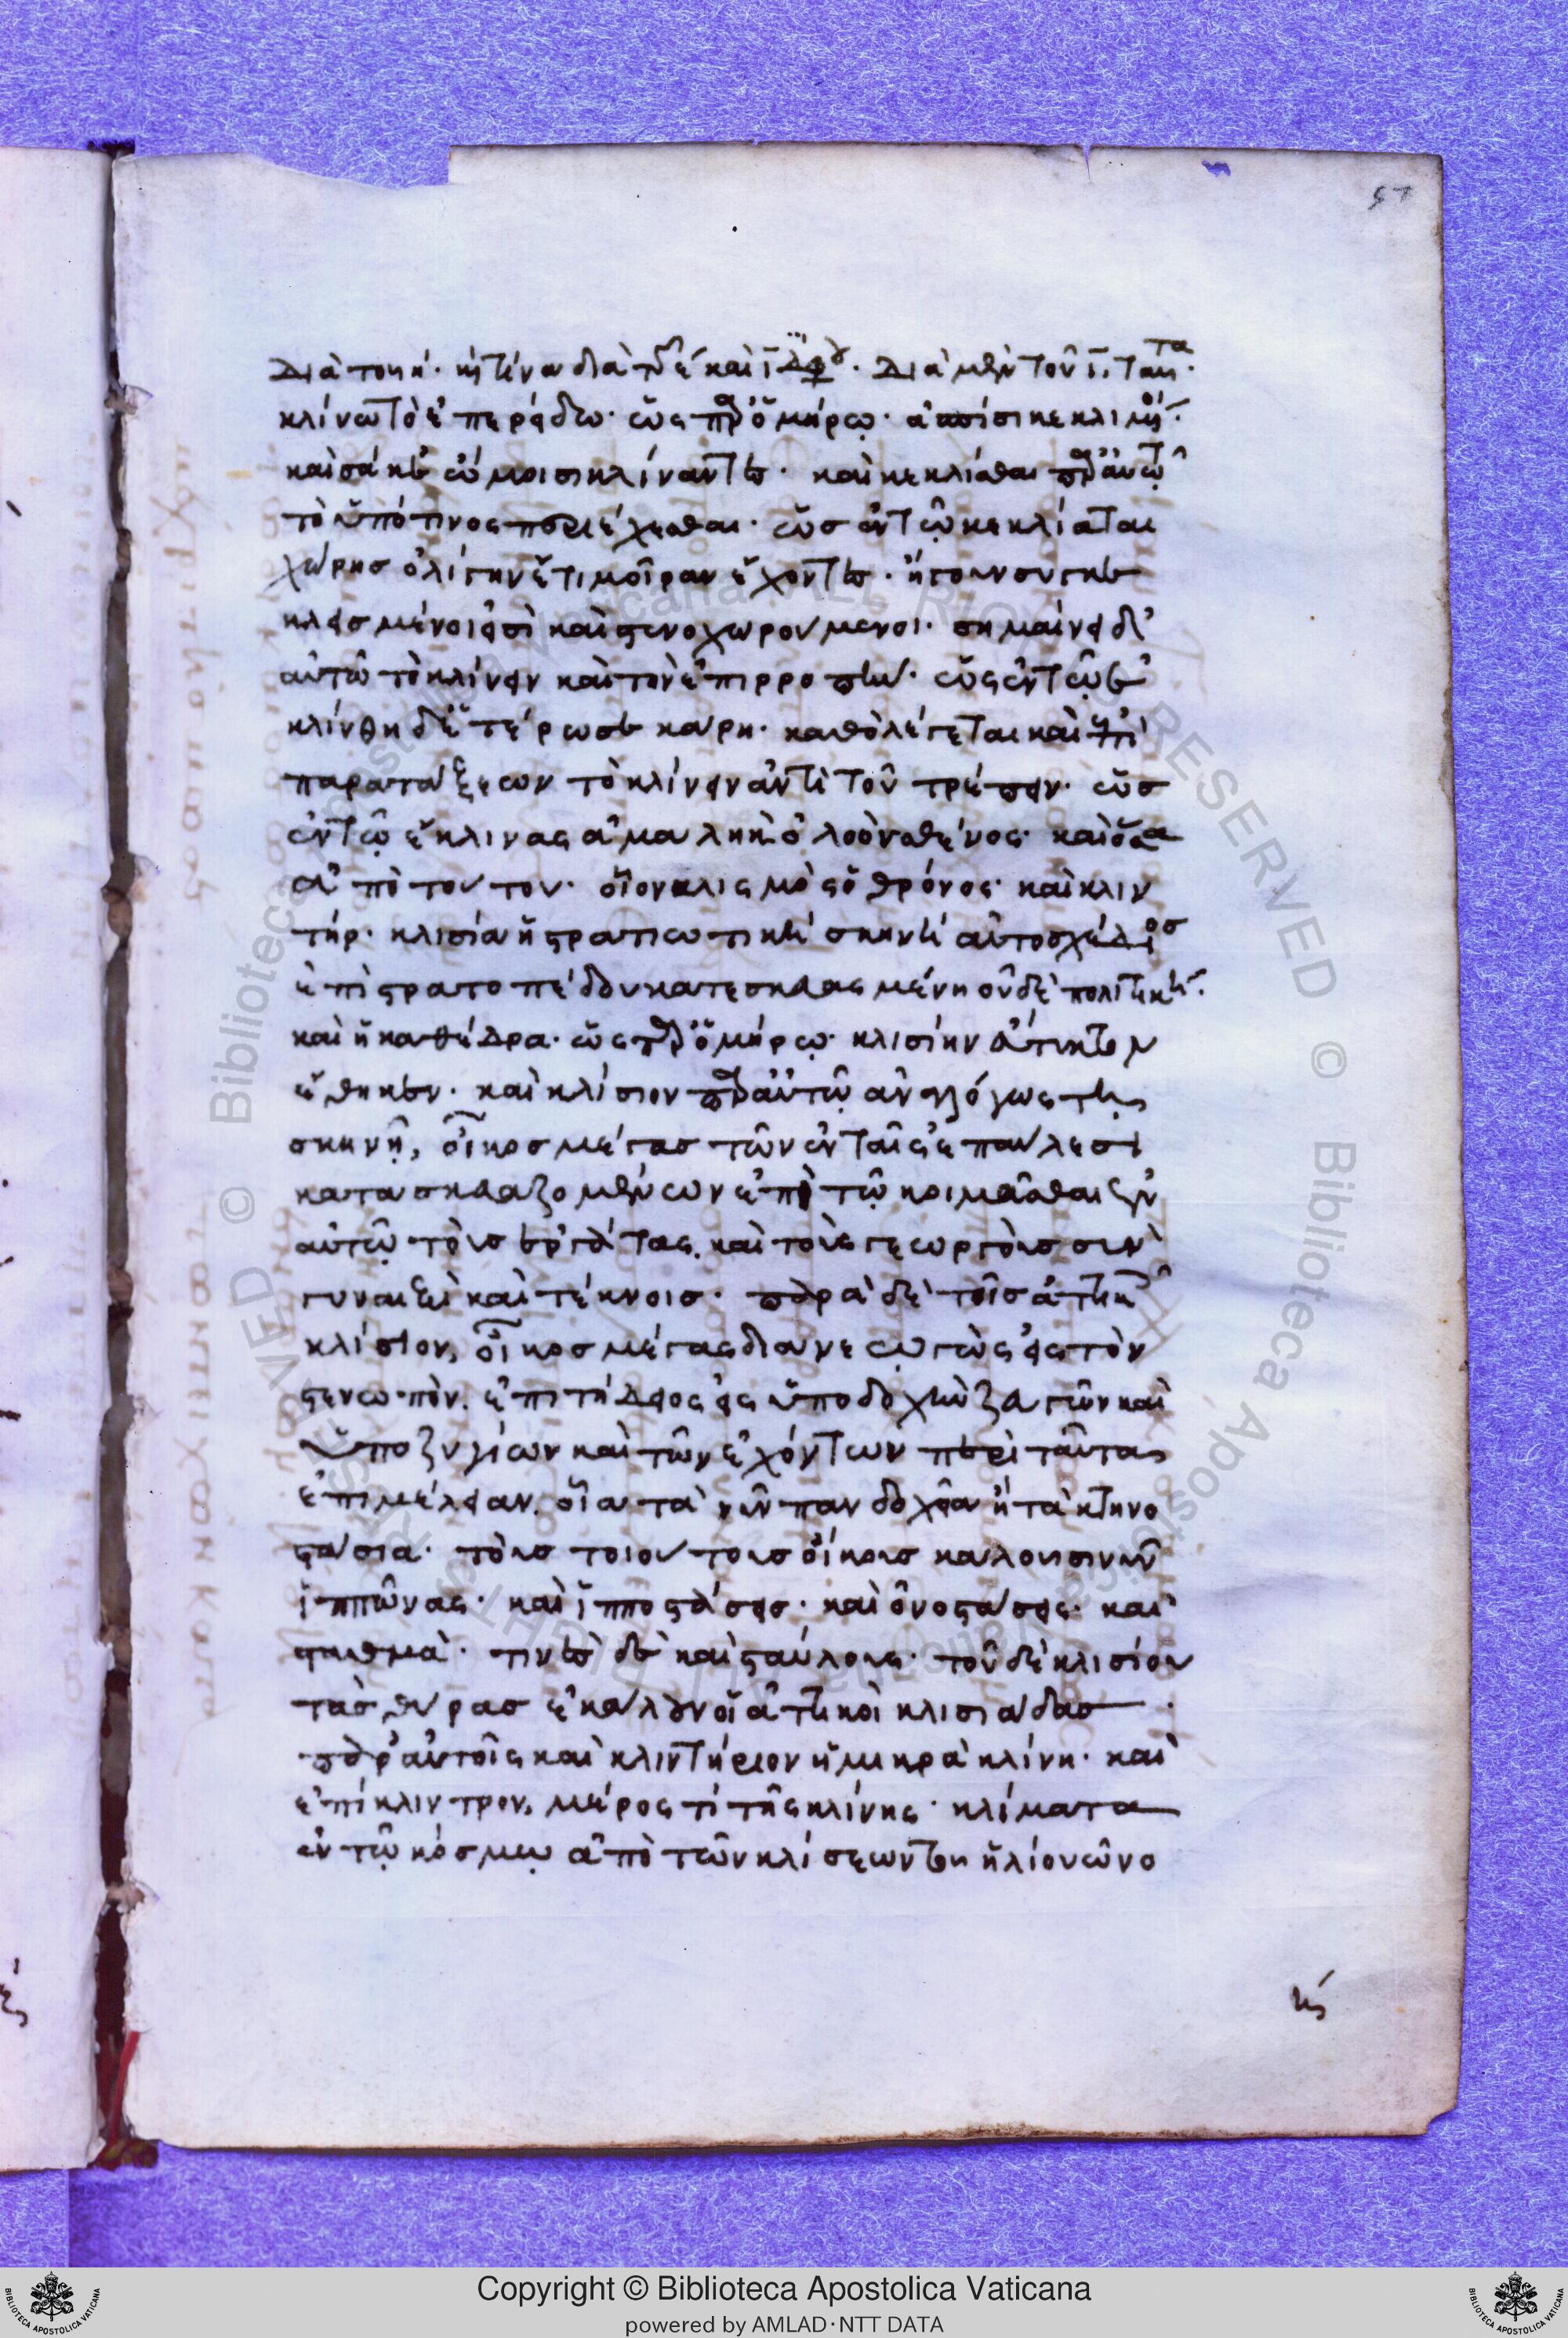 57
διὰ τοῦ η· κή τινα διὰ τοῦ ε καὶ ϊ διφθ· διὰ μὲν τοῦ ϊ, ταῦτα·
κλίνω τὸ ἐπερείδω· ὡς παρ' ὁμήρω· ἀσπίσι κεκλιμένοι·
καὶ σάκε' ὤμοισι κλίναντες· καὶ κεκλίσθαι παρ' αὐτῷ
τὸ ὑπό τινος περιέχεσθαι· ὡς ἐν τῷ κεκλίαται
χώρης ὀλίγην ἔτι μοῖραν ἔχοντες· ἤγουν συγκε
κλεισμένοι εἰσὶ καὶ στενοχωρούμενοι· σημαίνει δὲ
αὐτῶ τὸ κλίνειν καὶ τὴν ἐπιρροπήν· ὡς ἐν τῷ ε
κλίνθη δ' ἑτέρωσε κάρη· καθὸ λέγεται καὶ ἐπὶ
παρατάξεων τὸ κλίνειν ἀντὶ τοῦ τρέπειν· ὡς
ἐν τῷ ἔκλινας ἅμα λητὼ ὀλοὸν σθένος· καὶ ὅσα
ἀπὸ τούτου· οἷον κλισμὸς ὁ θρόνος· καὶ κλιν
τήρ· κλισία ἡ στρατιωτικὴ σκηνὴ αὐτοσχέδιος
ἐπὶ στρατοπέδου κατεσκευασμένη οὐδὲ πολιτικὴ·
καὶ ἡ καθέδρα· ὡς παρ' ὁμήρω· κλισίην
ἔθηκεν· καὶ κλίσιον παρ' αὐτῷ ἀναλόγως τῆς
σκηνῆ, οἶκος μέγας τῶν ἐν ταῖς ἐπαύλεσι
κατασκευαζομένων ἐπὶ τῷ κοιμᾶσθαι ἐν
αὐτῷ τοὺς ἐργάτας, καὶ τοὺς γεωργοὺς σὺν
γυναιξὶ καὶ τέκνοις· παρὰ δὲ τοῖς ἀττικοῖς
κλίσιον, οἶκος μέγας διανεῳγὼς εἰς τὸν
στενωπόν. ἐπιτήδειος εἰς ὑποδοχὴν ζευγῶν καὶ
ὑποζυγίων καὶ τῶν ἐχόντων περὶ ταῦτα
ἐπιμέλειαν. οἷα τὰ νῦν πανδοχεῖα ἢ τὰ κτηνο
στάσια· τοὺς τοιούτους οἴκους καλοῦσι νῦν
ἱππῶνας· καὶ ἱπποστάσεις· καὶ ὀνοστάσεις· καὶ
σταθμά· τινὲς δὲ καὶ σταύλους· τοῦ δὲ κλισίου
τὰς θύρας ἐκάλουν οἱ ἀττικοὶ κλισιάδας
παρ' αὐτοῖς καὶ κλιντήριον ἡ μικρὰ κλίνη· καὶ
ἐπίκλιντρον, μέρος τί τῆς κλίνης· κλίματα
ἐν τῷ κόσμω ἀπὸ τῶν κλίσεων τοῦ ἡλίου ὠνο
Copyright © Biblioteca Apostolica Vaticana
powered by AMLAD·NTT DATA